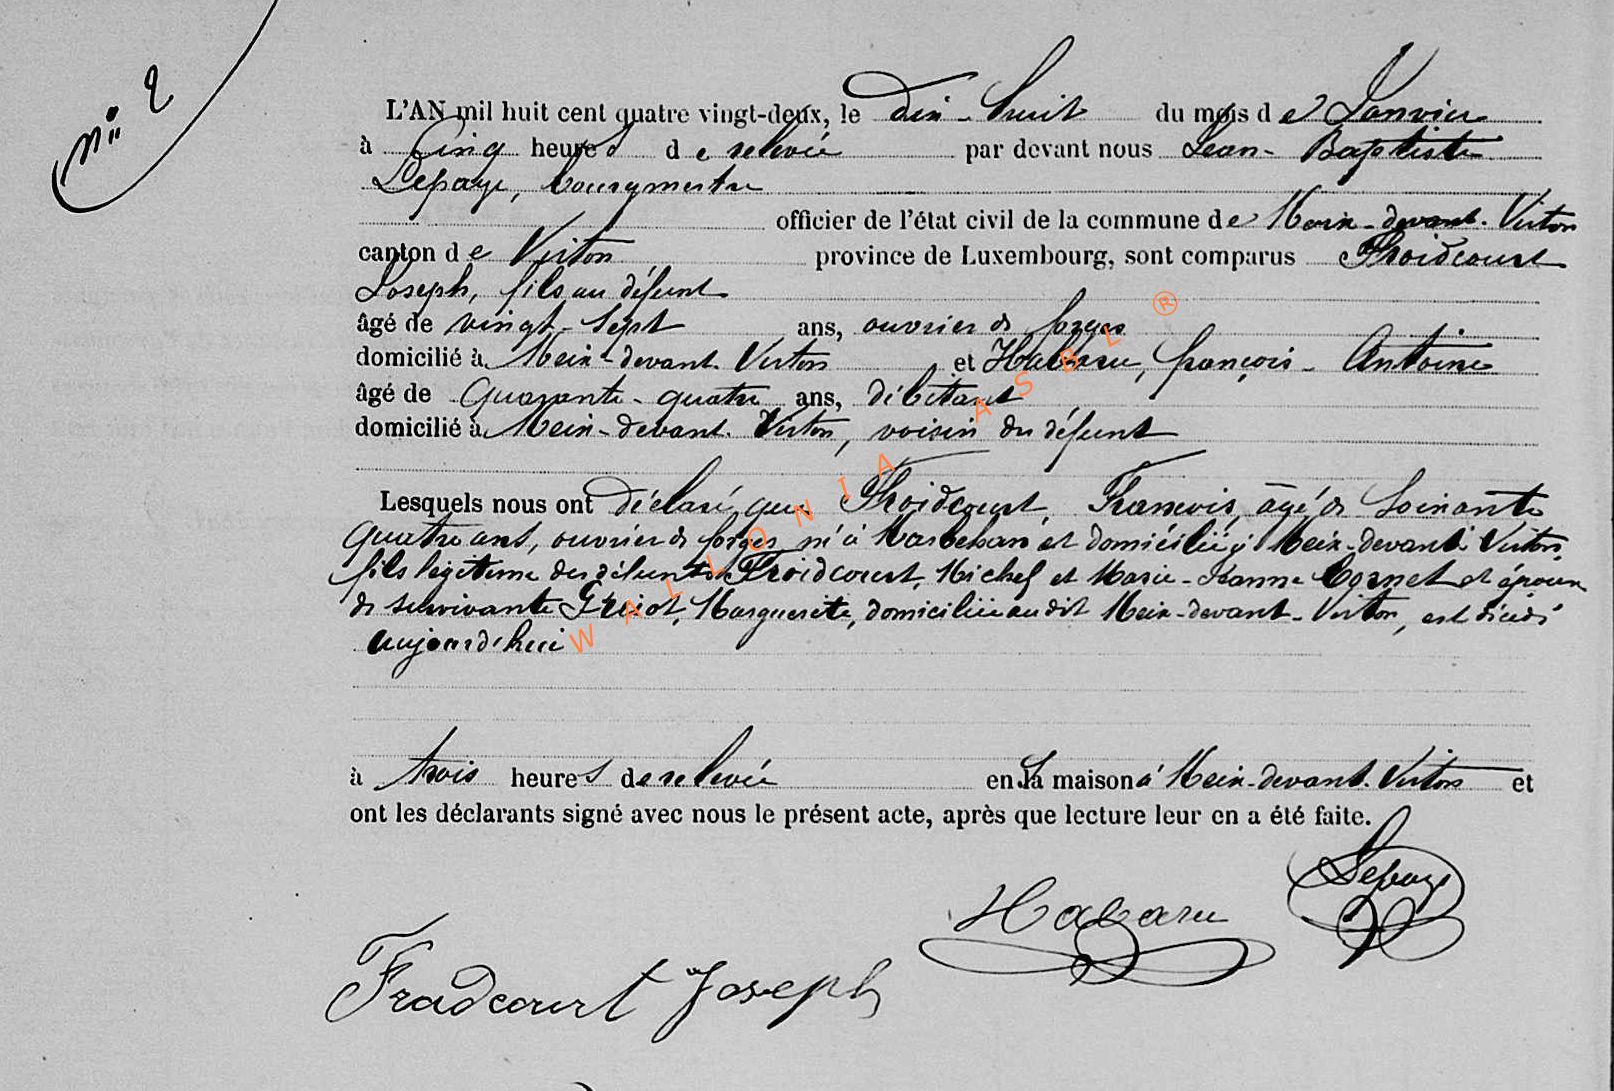 N° 2
L'AN mil huit cent quatre vingt-deux, le dix-huit du mois de Janvier
à Cinq heures de relevée par devant nous Jean-Baptiste
Lepage, bourgmestre
officier de l'état civil de la commune de Meix-devant-Virton
canton de Virton province de Luxembourg, sont comparus Froidcourt
Joseph, fils au défunt
âgé de vingt-sept ans, ouvrier de forges
domicilié à Meix-devant-Virton et Habaru, françois-Antoine
âgé de Quarante-quatre ans, débitant
domicilié à Meix-devant-Virton, voisin du défunt
Lesquels nous ont déclaré que Froidcourt, François, âgé de Soixante
quatre ans, ouvrier de forges, né à Marbehan et domicilié à Meix-devant-Virton,
fils légitime des défunts Froidcourt, Michel et Marie-Jeanne Cornet et époux
de survivante Griot, Marguerite, domiciliée audit Meix-devant-Virton, est décédé
aujourd'hui
à trois heures de relevée en sa maison à Meix-devant-Virton et
ont les déclarants signé avec nous le présent acte, après que lecture leur en a été faite.
Lepage
Habaru
Fradcourt Joseph
WALLONIA ASBL ®